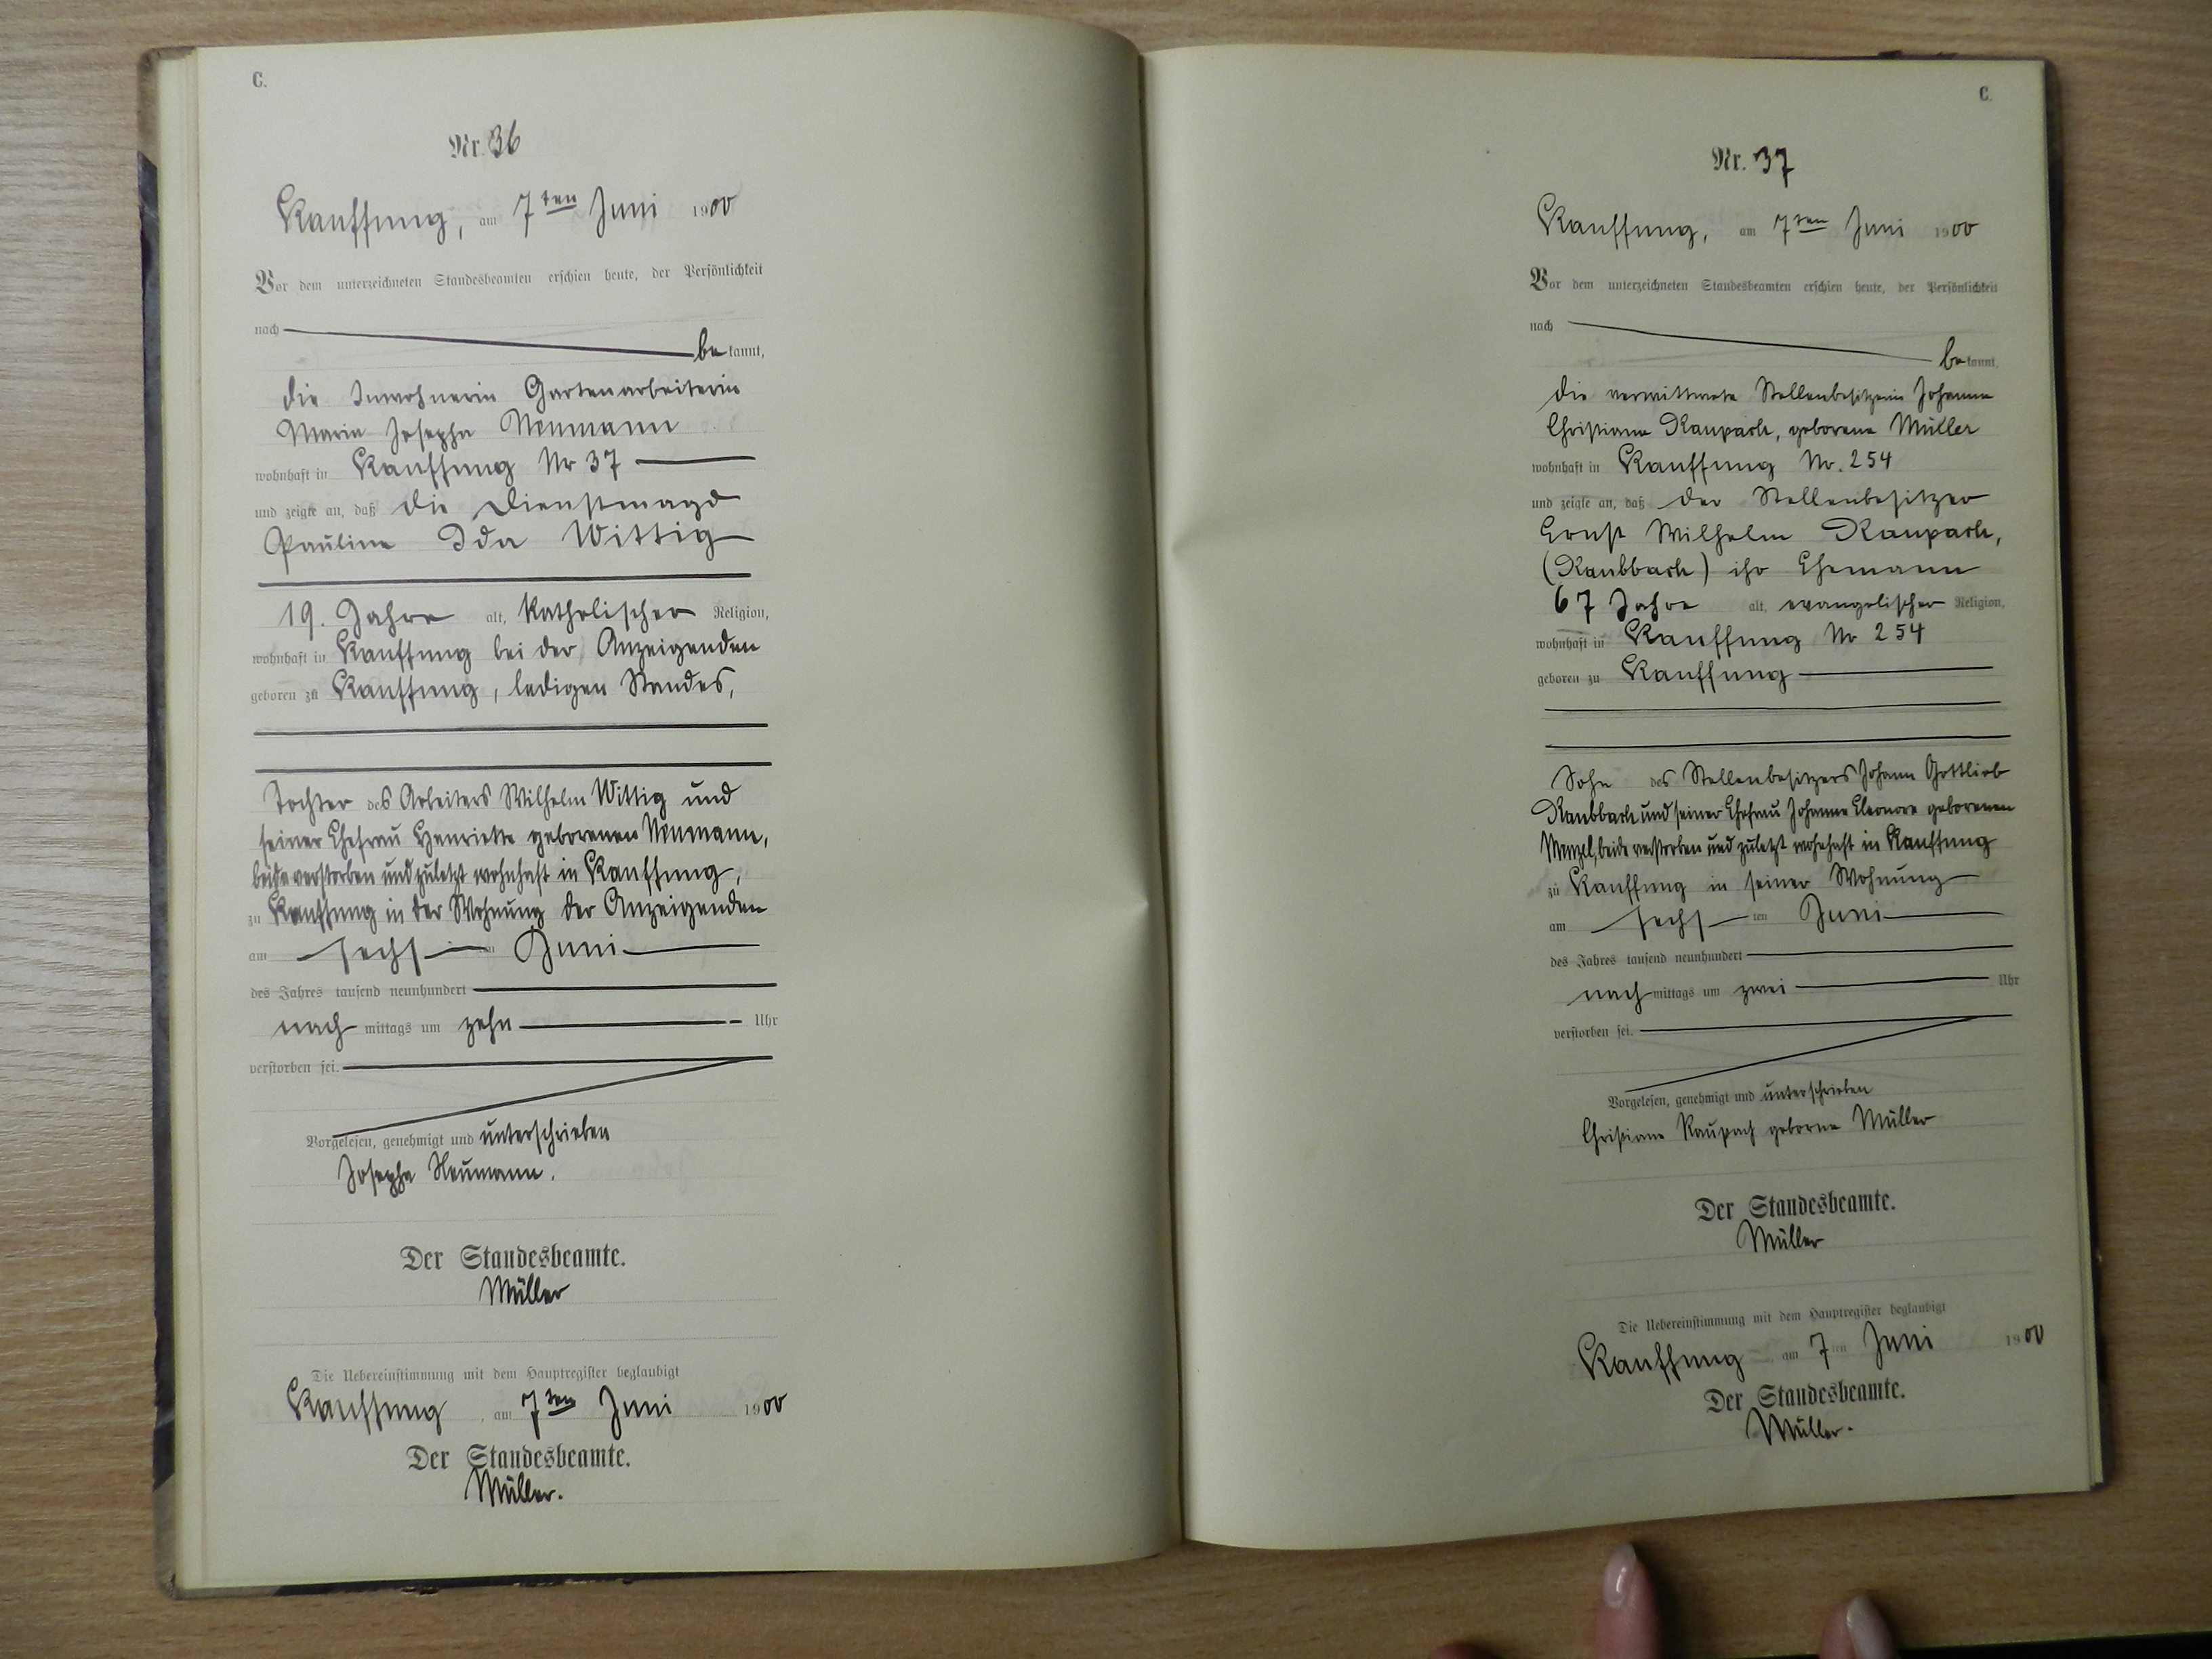 C.
Nr. 36
Kauffung, am 7ten Juni 1900
Vor dem unterzeichneten Standesbeamten erschien heute, der Persönlichkeit
nach
bekannt,
die Inwohnerin Gartenarbeiterin
Maria Josepha Neumann
wohnhaft in Kauffung Nr 37
und zeigte an, daß die Dienstmagd
Pauline Ida Wittig
19. Jahre alt, katholischer Religion,
wohnhaft in Kauffung bei der Anzeigenden
geboren zu Kauffung, ledigen Standes,
Tochter des Arbeiters Wilhelm Wittig und
seiner Ehefrau Henriette geborenen Neumann,
beide verstorben und zuletzt wohnhaft in Kauffung,
zu Kauffung in der Wohnung der Anzeigenden
am sechsten Juni
des Jahres tausend neunhundert
nachmittags um zehn Uhr
verstorben sei.
Vorgelesen, genehmigt und unterschrieben
Josepha Neumann.
Der Standesbeamte.
Müller
Die Uebereinstimmung mit dem Hauptregister beglaubigt
Kauffung, am 7ten Juni 1900
Der Standesbeamte.
Müller.
C.
Nr. 37
Kauffung, am 7ten Juni 1900
Vor dem unterzeichneten Standesbeamten erschien heute, der Persönlichkeit
nach
bekannt,
die verwittwete Stellenbesitzerin Johanne
Christiane Raupach, geborene Müller
wohnhaft in Kauffung Nr. 254
und zeigte an, daß der Stellenbesitzer
Ernst Wilhelm Raupach,
(Raubbach) ihr Ehemann
67 Jahre alt, evangelischer Religion,
wohnhaft in Kauffung Nr 254
geboren zu Kauffung
Sohn des Stellenbesitzers Johann Gottlieb
Raubbach und seiner Ehefrau Johanne Eleonore geborenen
Menzel, beide verstorben und zuletzt wohnhaft in Kauffung
zu Kauffung in seiner Wohnung
am sechsten Juni
des Jahres tausend neunhundert
nachmittags um zwei Uhr
verstorben sei.
Vorgelesen, genehmigt und unterschrieben
Christiane Raupach geborne Müller
Der Standesbeamte.
Müller
Die Uebereinstimmung mit dem Hauptregister beglaubigt
Kauffung am 7ten Juni 1900
Der Standesbeamte.
Müller.